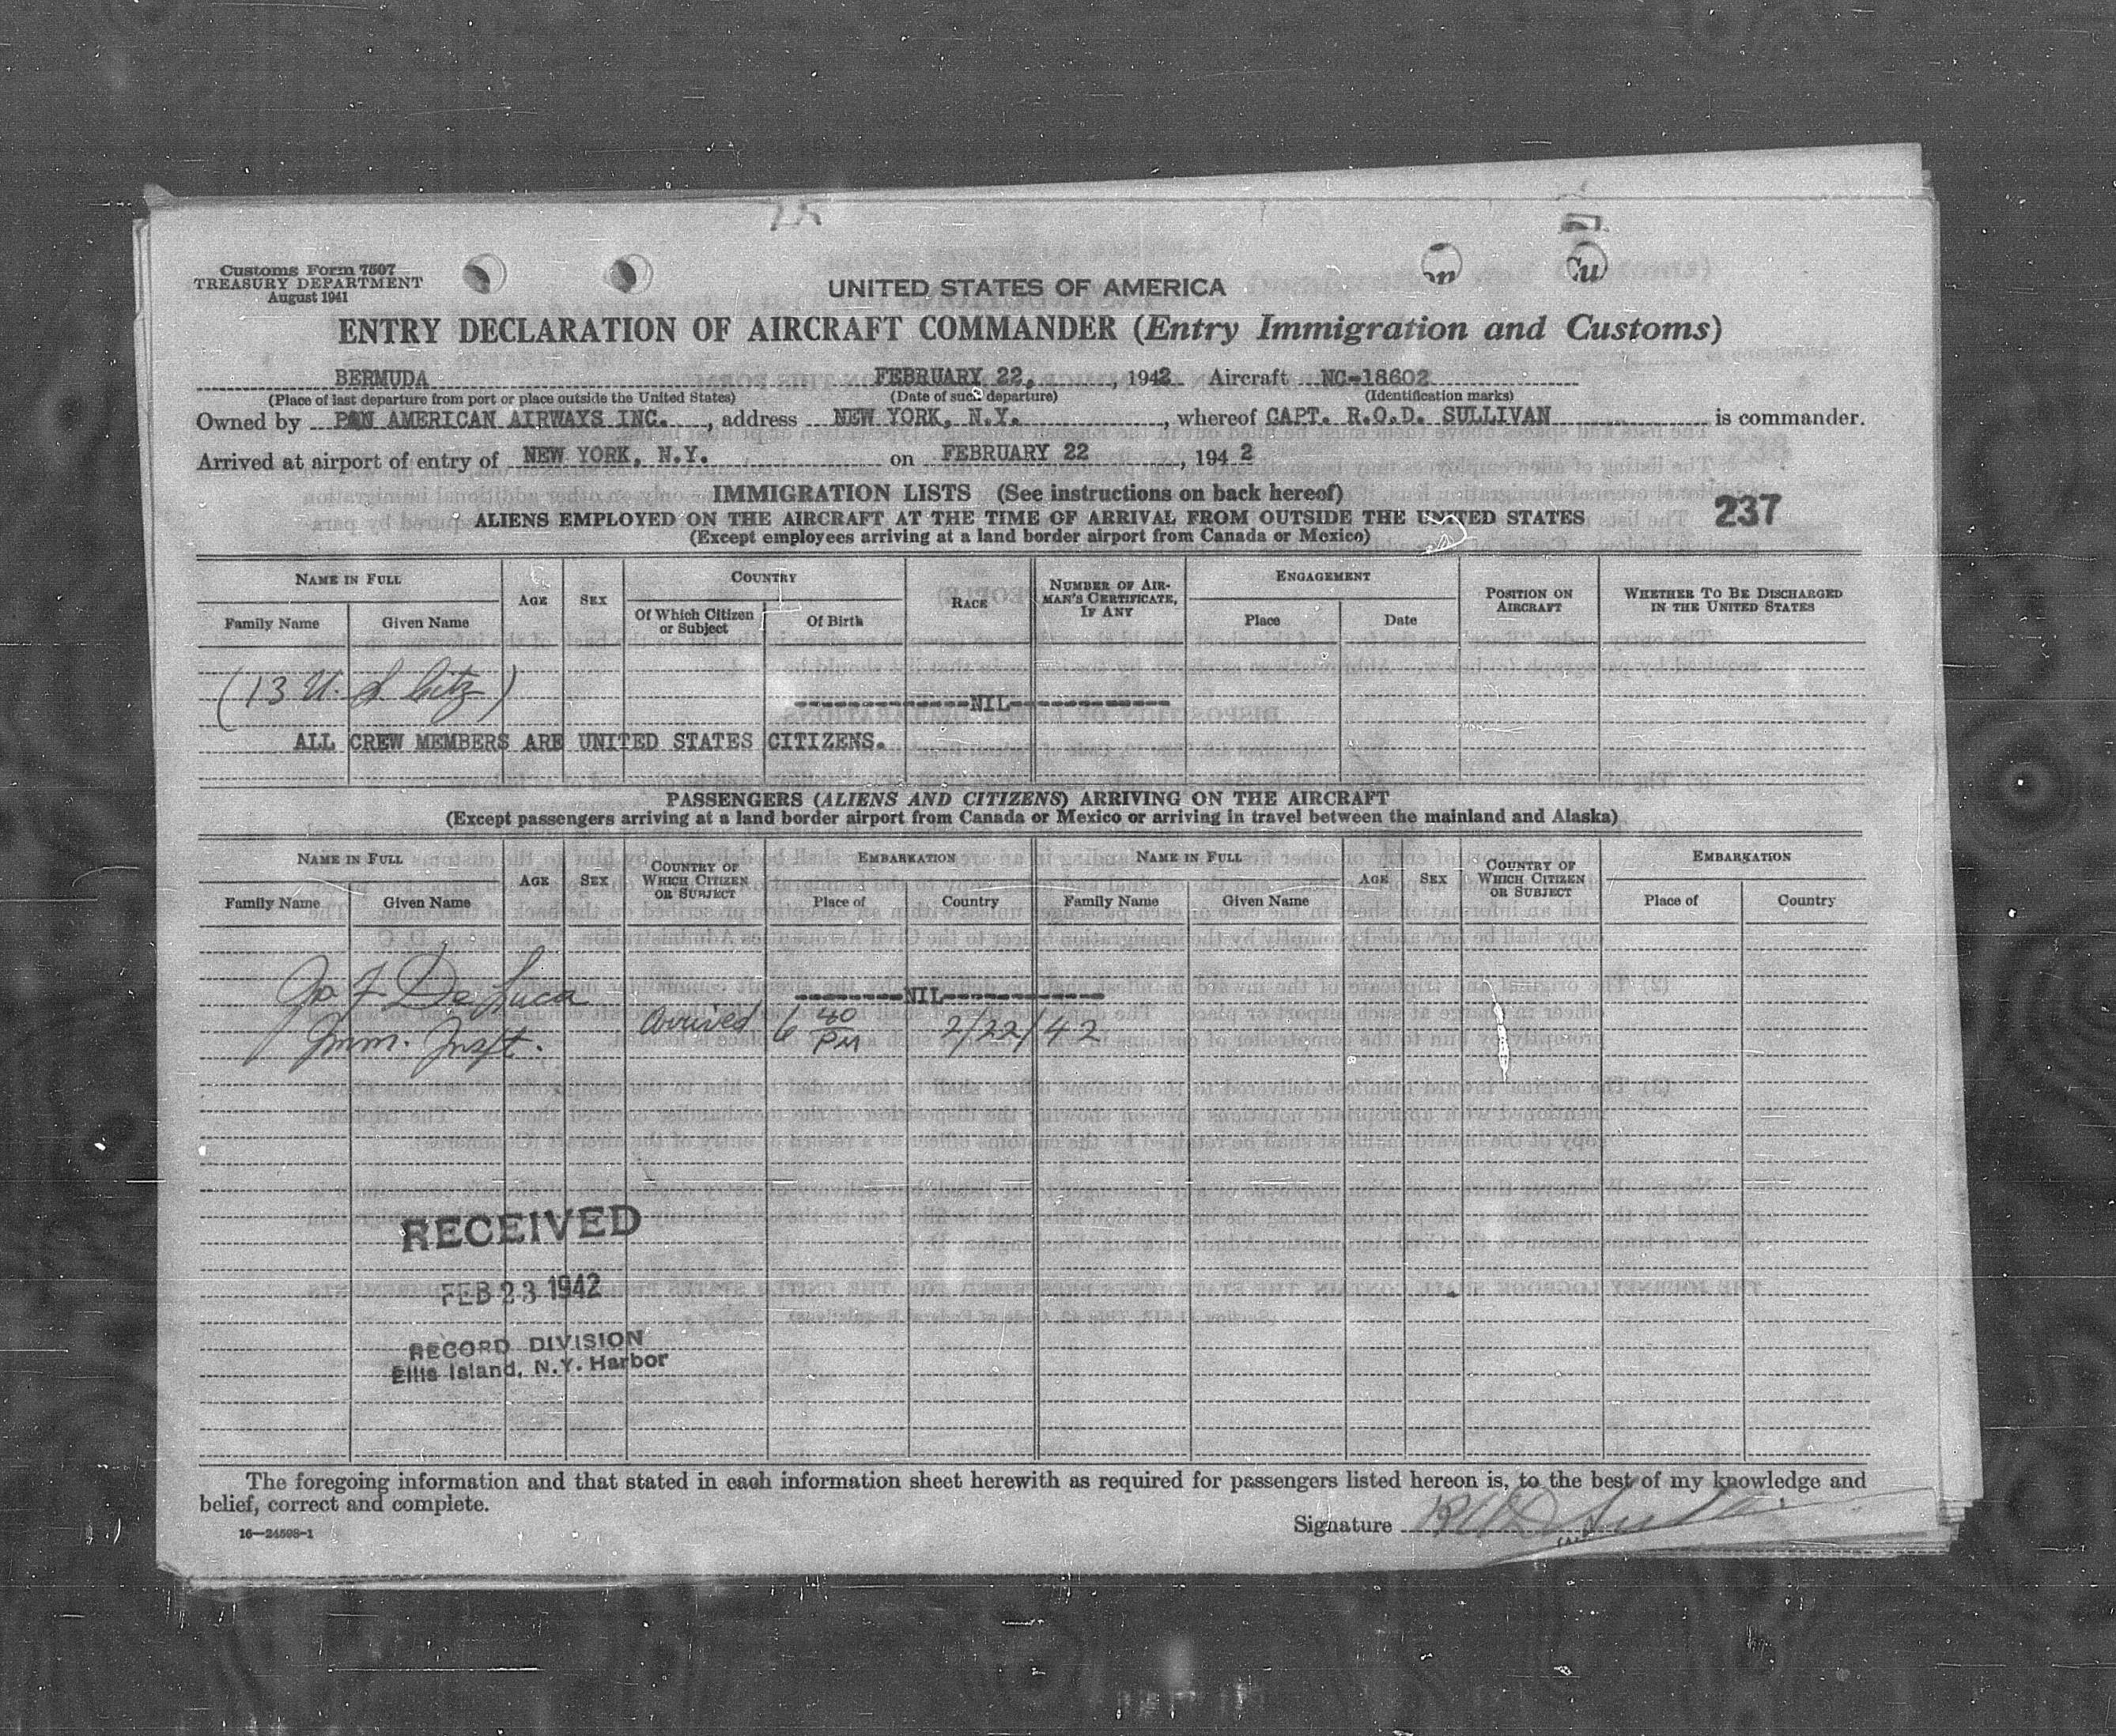 Customs Form 7507
TREASURY DEPARTMENT
August 1941
on
Cu
UNITED STATES OF AMERICA
ENTRY DECLARATION OF AIRCRAFT COMMANDER (Entry Immigration and Customs)
BERMUDA FEBRUARY 22, , 1942 Aircraft NC-18602
(Place of last departure from port or place outside the United States) (Date of such departure) (Identification marks)
Owned by PAN AMERICAN AIRWAYS INC. , address NEW YORK, N.Y. , whereof CAPT. R.O.D. SULLIVAN is commander.
Arrived at airport of entry of NEW YORK, N.Y. on FEBRUARY 22 , 194 2
IMMIGRATION LISTS (See instructions on back hereof)
237
ALIENS EMPLOYED ON THE AIRCRAFT AT THE TIME OF ARRIVAL FROM OUTSIDE THE UNITED STATES
(Except employees arriving at a land border airport from Canada or Mexico)
NAME IN FULL AGE SEX COUNTRY RACE NUMBER OF AIRMAN'S CERTIFICATE, IF ANY ENGAGEMENT POSITION ON AIRCRAFT WHETHER TO BE DISCHARGED IN THE UNITED STATES
Family Name Given Name Of Which Citizen or Subject Of Birth Place Date
(13 U. S Citz)
-------------NIL------------
ALL CREW MEMBERS ARE UNITED STATES CITIZENS.
PASSENGERS (ALIENS AND CITIZENS) ARRIVING ON THE AIRCRAFT
(Except passengers arriving at a land border airport from Canada or Mexico or arriving in travel between the mainland and Alaska)
NAME IN FULL AGE SEX COUNTRY OF WHICH CITIZEN OR SUBJECT EMBARKATION NAME IN FULL AGE SEX COUNTRY OF WHICH CITIZEN OR SUBJECT EMBARKATION
Family Name Given Name Place of Country Family Name Given Name Place of Country
Jo F De Luca
--------NIL------------
Imm. Inspt. Arrived 6 40 PM 2/22/42
RECEIVED
FEB 23 1942
RECORD DIVISION
Ellis Island, N.Y. Harbor
The foregoing information and that stated in each information sheet herewith as required for passengers listed hereon is, to the best of my knowledge and
belief, correct and complete.
16—24598-1
Signature ROD Sullivan